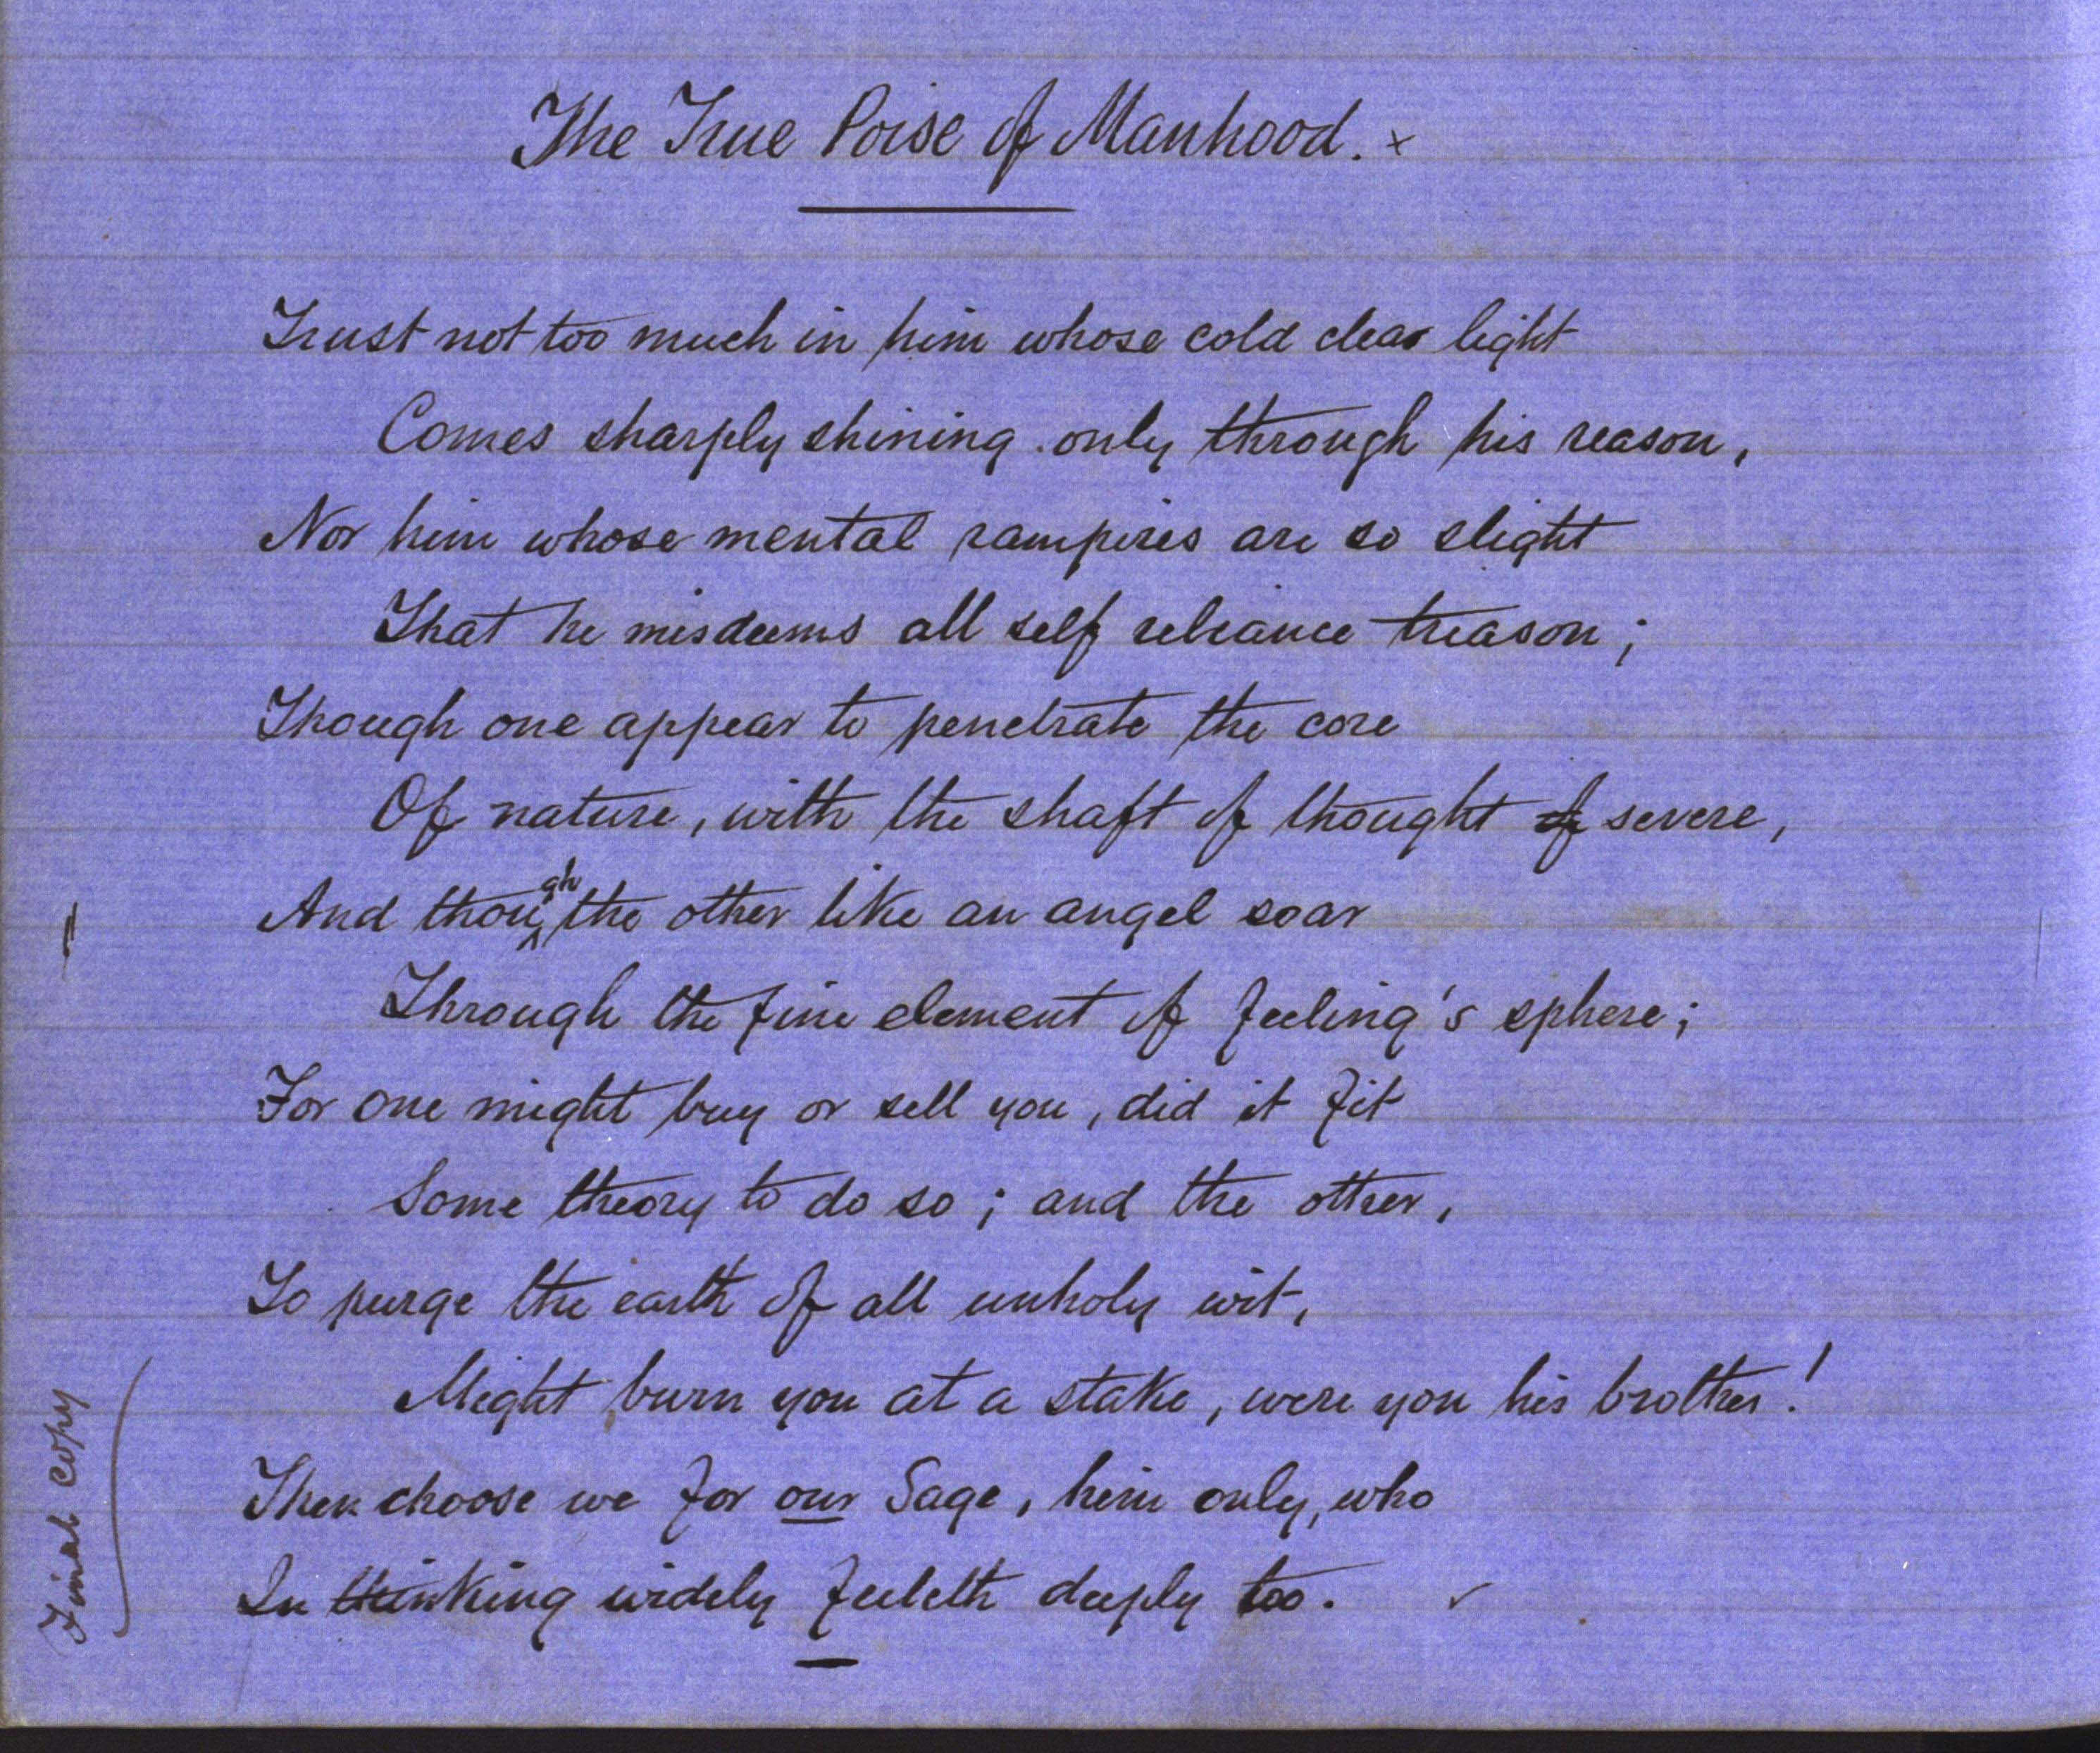 The True Poise of Manhood. ×
Trust not too much in him whose cold clear light
Comes sharply shining only through his reason,
Nor him whose mental rampires are so slight
That he misdeems all self reliance treason;
Though one appear to penetrate the core
Of nature, with the shaft of thought of severe,
And though the other like an angel soar
Through the fine element of feeling's sphere;
For one might buy or sell you, did it fit
Some theory to do so; and the other,
To purge the earth of all unholy wit,
Might burn you at a stake, were you his brother!
Then choose we for our Sage, him only, who
In thinking widely feeleth deeply too. ✓
Final copy